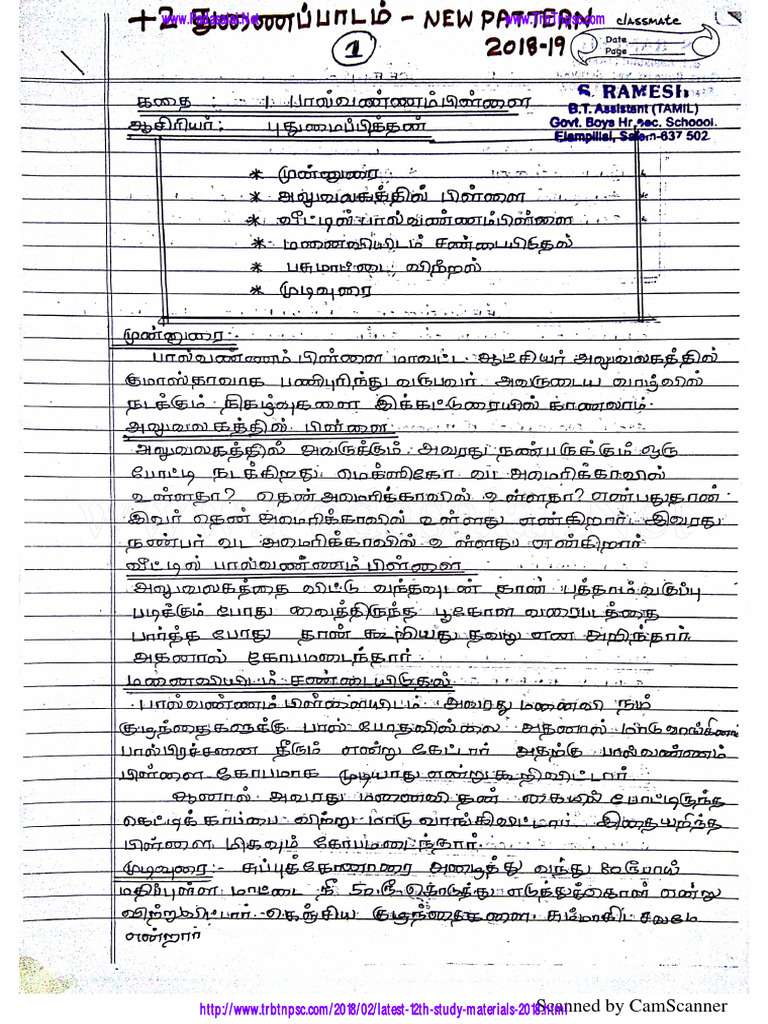 www.Padasalai.Net
www.TrbTnpsc.com
+2 துணைப்பாடம் - NEW PATTERN
2018-19
1
classmate
Date
Page
S. RAMESH
B.T. Assistant (TAMIL)
Govt. Boys Hr.sec. School,
Elampillai, Salem-637 502.
கதை : 1. பால்வண்ணம்பிள்ளை
ஆசிரியர் : புதுமைப்பித்தன்
* முன்னுரை
* அலுவலகத்தில் பிள்ளை
* வீட்டில் பால்வண்ணம்பிள்ளை
* மனைவியிடம் சண்டையிடுதல்
* பசுமாட்டை விற்றல்
* முடிவுரை
முன்னுரை :-
பால்வண்ணம் பிள்ளை மாவட்ட ஆட்சியர் அலுவலகத்தில்
குமாஸ்தாவாக பணிபுரிந்து வருபவர். அவருடைய வாழ்வில்
நடக்கும் நிகழ்வுகளை இக்கட்டுரையில் காணலாம்.
அலுவலகத்தில் பிள்ளை
அலுவலகத்தில் அவருக்கும் அவரது நண்பருக்கும் ஒரு
போட்டி நடக்கிறது. மெக்ஸிகோ வட அமெரிக்காவில்
உள்ளதா? தென் அமெரிக்காவில் உள்ளதா? என்பதுதான்
இவர் தென் அமெரிக்காவில் உள்ளது என்கிறார். இவரது
நண்பர் வட அமெரிக்காவில் உள்ளது என்கிறார்
வீட்டில் பால்வண்ணம்பிள்ளை
அலுவலகத்தை விட்டு வந்தவுடன் தான் பத்தாம்வகுப்பு
படிக்கும் போது வைத்திருந்த பூகோள வரைபடத்தை
பார்த்த போது தான் கூறியது தவறு என அறிந்தார்.
அதனால் கோபமடைந்தார்.
மனைவியிடம் சண்டையிடுதல்
பால்வண்ணம்பிள்ளையிடம் அவரது மனைவி நம்
குழந்தைகளுக்கு பால் போதவில்லை அதனால் மாடு வாங்கினால்
பால்பிரச்சனை தீரும் என்று கேட்டார் அதற்கு பால்வண்ணம்
பிள்ளை கோபமாக முடியாது என்று கூறிவிட்டார்.
ஆனால் அவரது மனைவி தன் கையில் போட்டிருந்த
கெட்டிக்காப்பை விற்று மாடு வாங்கிவிட்டார். இதையறிந்த
பிள்ளை மிகவும் கோபமடைந்தார்.
முடிவுரை :- சுப்புக்கோனாரை அழைத்து வந்து 80ரூபாய்
மதிப்புள்ள மாட்டை நீ 50ரூ கொடுத்து எடுத்துக்கொள் என்று
விற்றுவிட்டார். கெஞ்சிய குழந்தைகளை சும்மாகிட சவமே
என்றார்
http://www.trbtnpsc.com/2018/02/latest-12th-study-materials-2018.html
Scanned by CamScanner